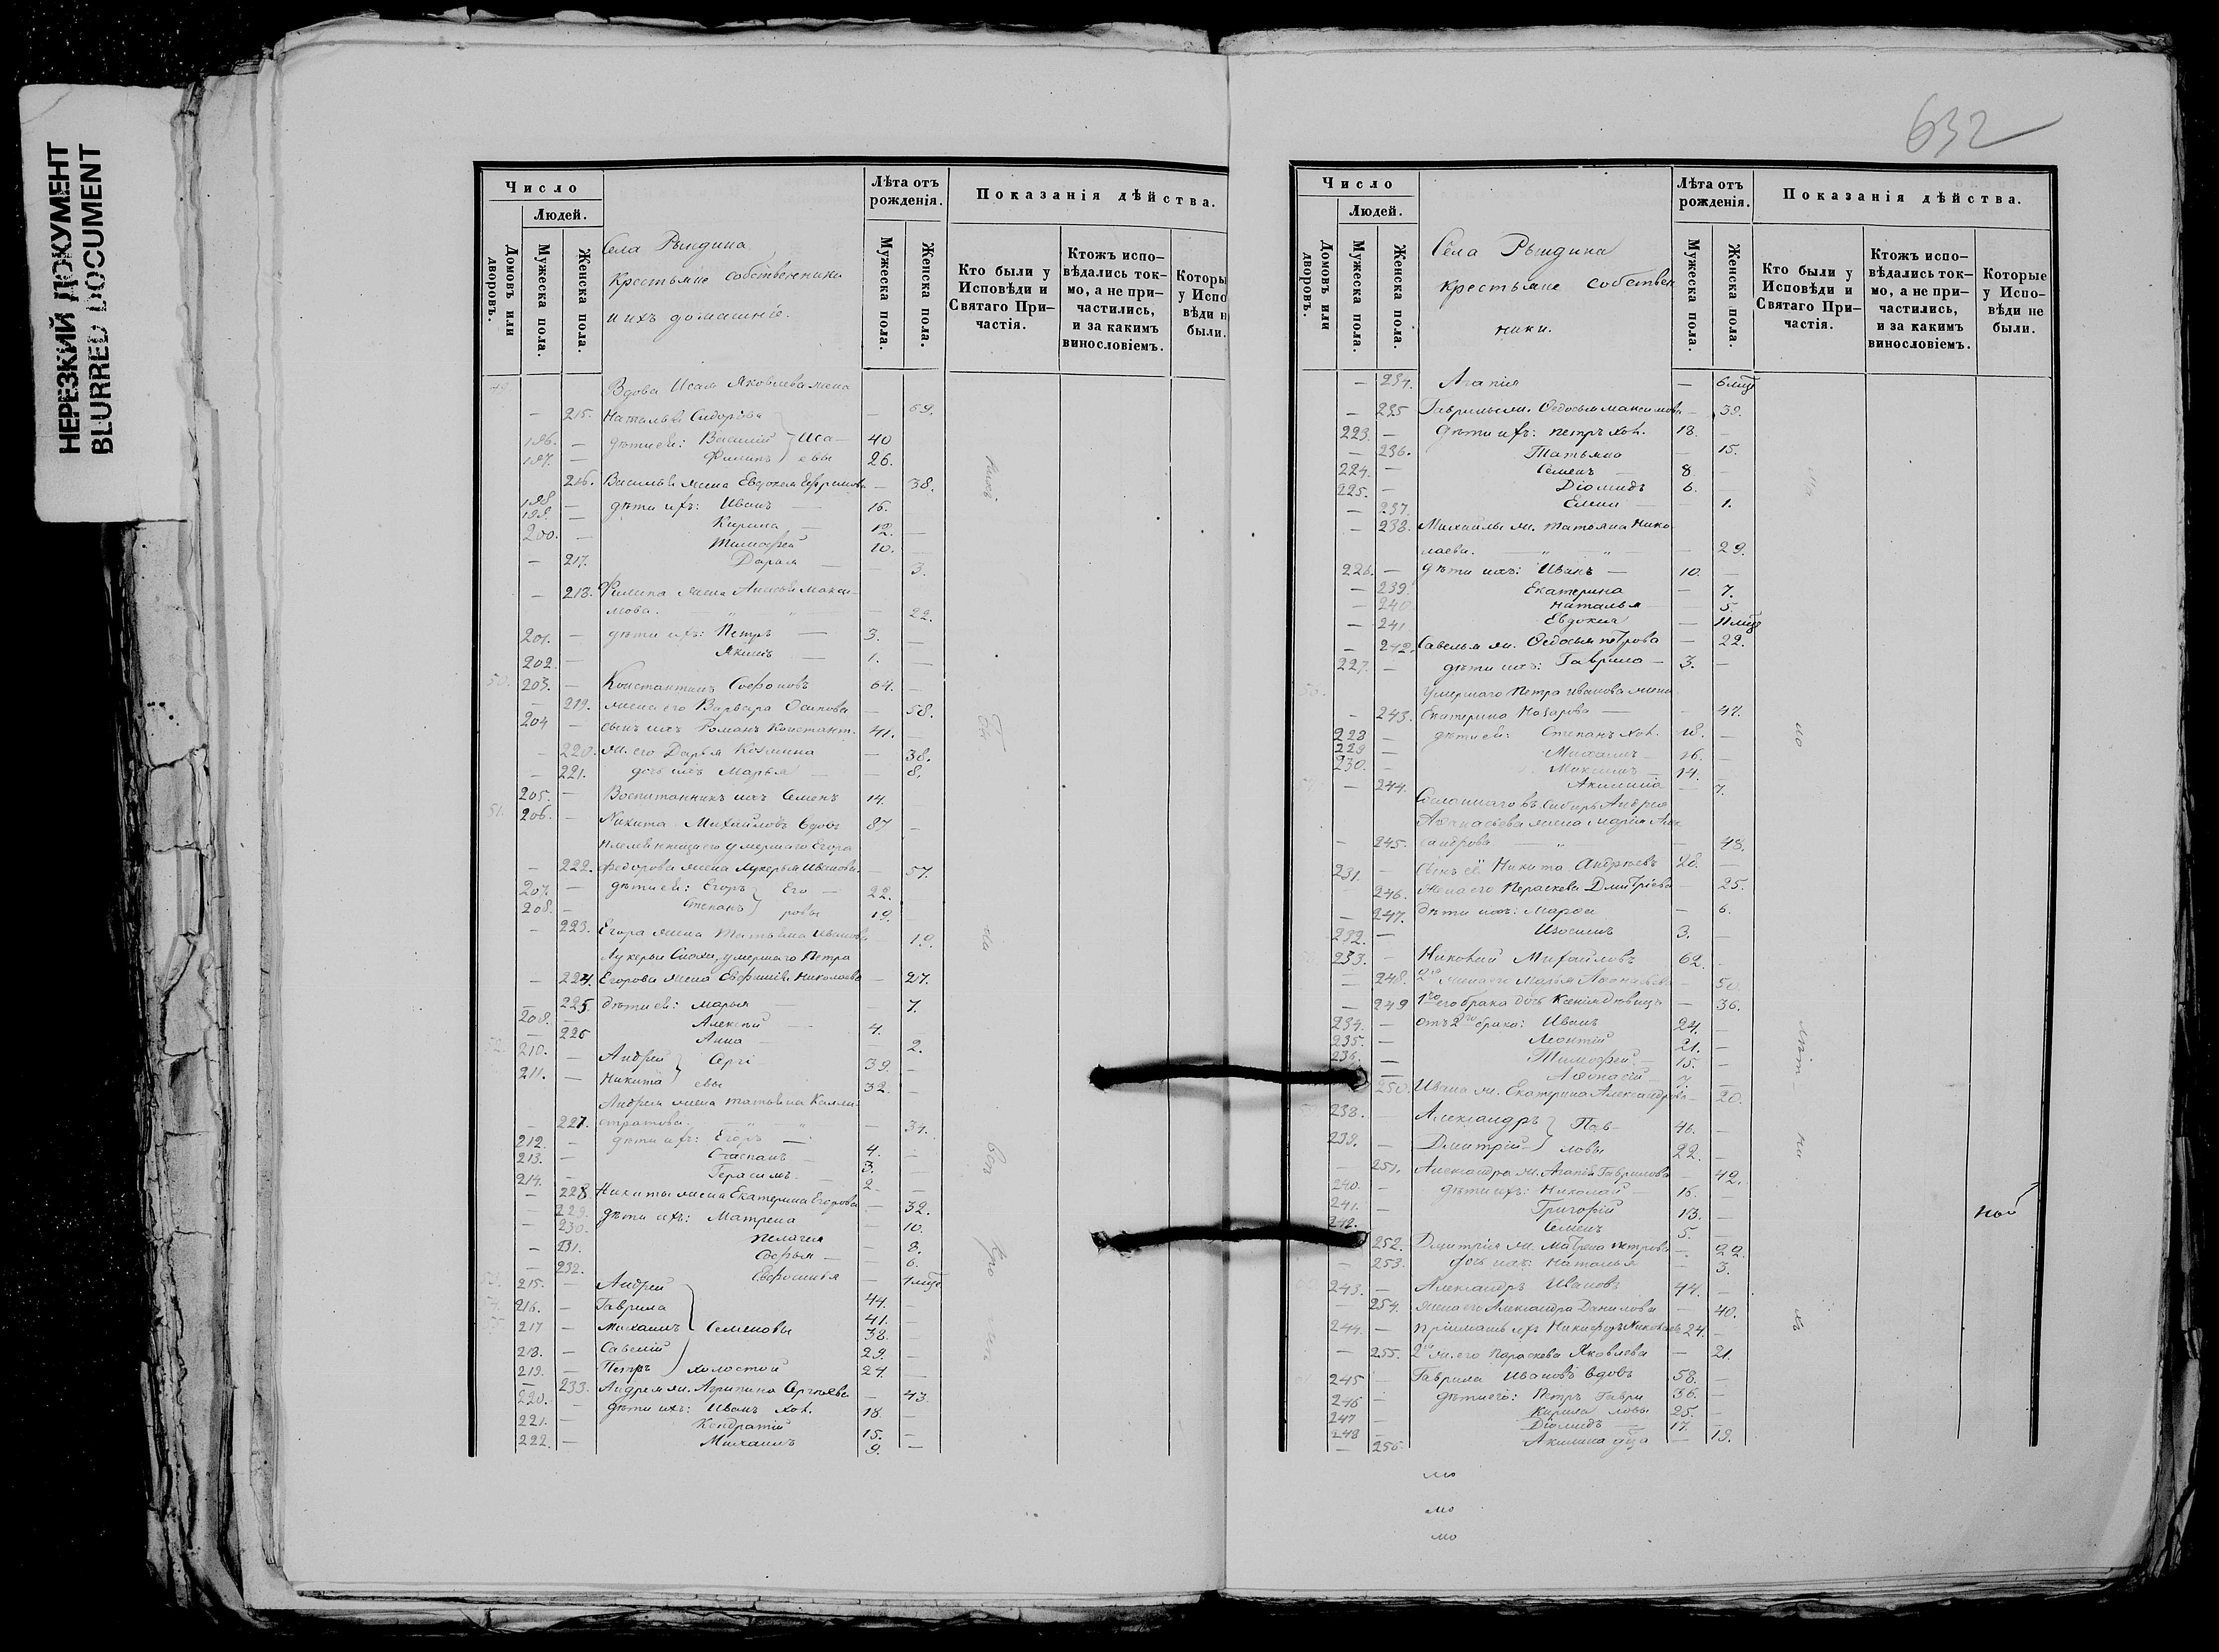 НЕРЕЗКИЙ ДОКУМЕНТ
BLURRED DOCUMENT
Число
Людей.
Домовъ или дворовъ.
Мужеска пола.
Женска пола.
Села Рындина
крестьяне собственники
и ихъ домашніе.
Лѣта отъ рожденія.
Мужеска пола.
Женска пола.
Показанія дѣйства.
Кто были у Исповѣди и Святаго Причастія.
Ктожъ исповѣдались токмо, а не причастились, и за какимъ винословіемъ.
Которы
у Испо
вѣди н
были.
49. Вдова Исая Яковлева жена
— 215. Наталья Сидорова — 69.
196. — дѣти ея: Василій } Иса- 40
197. — Филипъ } евы 26.
216. Василья жена Евдокея Ефремова — 38.
198. — дѣти ихъ: Иванъ — 16.
199. — Кирила — 12. —
200. — Тимофей 10. —
— 217. Дарья — — 3.
— 218. Филипа жена Анисья Макси-
мова. — 22.
201. — дѣти ихъ: Петръ — 3. —
202. — Якимъ — 1. —
50. 203. — Константинъ Софоновъ 64. —
— 219. жена его Варвара Осипова — 58.
204 — сынъ ихъ Романъ Константин. 41. —
— 220. ж. его Дарья Козмина — 38.
— 221. дочь ихъ Марья — — 8.
205. — Воспитанникъ ихъ Семенъ 14.
51. 206. — Никита Михайловъ вдовъ 87 —
племянница его умершаго Егора
— 222. Федорова жена Лукерья Иванова — 57.
207. — дѣти ея: Егоръ } Его- 22. —
208. — Степанъ } ровы 19. —
— 223. Егора жена Татьяна Иванова 19.
Лукерьи сноха, умершаго Петра
— 224. Егорова жена Евфимія Николаева — 27.
— 225. дѣти ея: Марья — 7.
209. — Алексѣй — 4. —
— 226 Анна — 2.
52. 210. — Андрей } Сергѣ 39. —
211. — Никита } евы 32. —
Андрея жена Татьяна Калли-
— 227. стратова. — „ — „ — 34.
212. — дѣти ихъ: Егоръ — 4. —
213. — Степанъ — 3. —
214. — Герасимъ. — 2. —
— 228. Никиты жена Екатерина Егорова — 32.
— 229. дѣти ихъ: Матрена — 10.
— 230. Пелагея — 8.
— 231. Софья — — 6.
— 232. Евфросинья — 1 мѣсе
53. 215. — Андрей 44. —
54. 216. — Гаврила 41. —
217 — Михаилъ } Семеновы 38. —
218. — Савелій 29. —
219. — Петръ холостой 24. —
— 233. Андрея ж. Агрипина Сергѣева — 43.
220. — дѣти ихъ: Иванъ хол. 18. —
221. — Кондратій 15. —
222. — Михаилъ 9. —
632
Число
Людей.
Домовъ или дворовъ.
Мужеска пола.
Женска пола.
Села Рындина
крестьяне собствен
ники.
Лѣта отъ рожденія.
Мужеска пола.
Женска пола.
Показанія дѣйства.
Кто были у Исповѣди и Святаго Причастія.
Ктожъ исповѣдались токмо, а не причастились, и за какимъ винословіемъ.
Которые у Исповѣди не были.
— 234. Агапія — 6 мѣсе
— 235 Гаврилы ж. Ѳедосья Максимова — 39.
223. — дѣти ихъ: Петръ хол. 18. —
— 236. Татьяна — 15.
224. — Семенъ — 8. —
225. — Діомидъ 6. —
— 237. Елена — — 1.
— 238. Михайлы ж. Татьяна Нико-
лаева. — „ — „ — — 29.
226. — дѣти ихъ: Иванъ — 10. —
— 239. Екатерина — 7.
— 240. Наталья — 5.
— 241 Евдокия — 11 мѣсе
— 242. Савелья ж. Ѳедосья Петрова — 22.
227. — дѣти ихъ: Гаврила — 3. —
56. умершаго Петра Иванова жена
— 243. Екатерина Назарова — — 47.
228 — дѣти ея: Степанъ хол. 18. —
229 — Михаилъ — 16. —
230. — Максимъ — 14. —
— 244. Акилина — 7.
Сосланнаго въ Сибирь Андрея
Аѳанасьева жена Марія Алек
— 245. сандрова — „ — 48.
231. — сынъ её Никита Андреевъ 28. —
— 246. Жена его Пераскева Дмитріева — 25.
— 247. дѣти ихъ: Марѳа — 6.
232. — Изосимъ 3. —
233. — Николай Михайловъ 62. —
— 248. 2я жена его Марья Аѳонасьева — 50.
— 249 1го его брака дочь Ксенія дѣвица — 36.
234. — отъ 2го брака: Иванъ 24. —
235. — Леонтій 21. —
236. — Тимофей — 15. —
— Аѳонасій — 7. —
250. Ивана ж. Екатерина Александрова — 20.
238. — Александръ } Пав- 46. —
239. — Дмитрій } ловы 22. —
— 251. Александра ж. Агапія Гаврилова — 42.
240. — дѣти ихъ: Николай — 16. —
241. — Григорій 13. —
242. — Семенъ 5. —
252. Дмитрія ж. Матрена Петрова — 22.
— 253. дочь ихъ: Наталья — 3.
243. — Александръ Ивановъ 44. —
— 254. жена его Александра Данилова — 40.
244. — пріимышъ ихъ Никифоръ Николаевъ 24. —
— 255. 2я ж. его Параскева Яковлева — 21.
245 — Гаврила Ивановъ вдовъ 58. —
246 — дѣти его: Петръ Гаври 36. —
247 — Кирила ловы 25. —
248 — Діомидъ — 17. —
— 256. Акилина д̅ца — 19.
мо
мо
мо